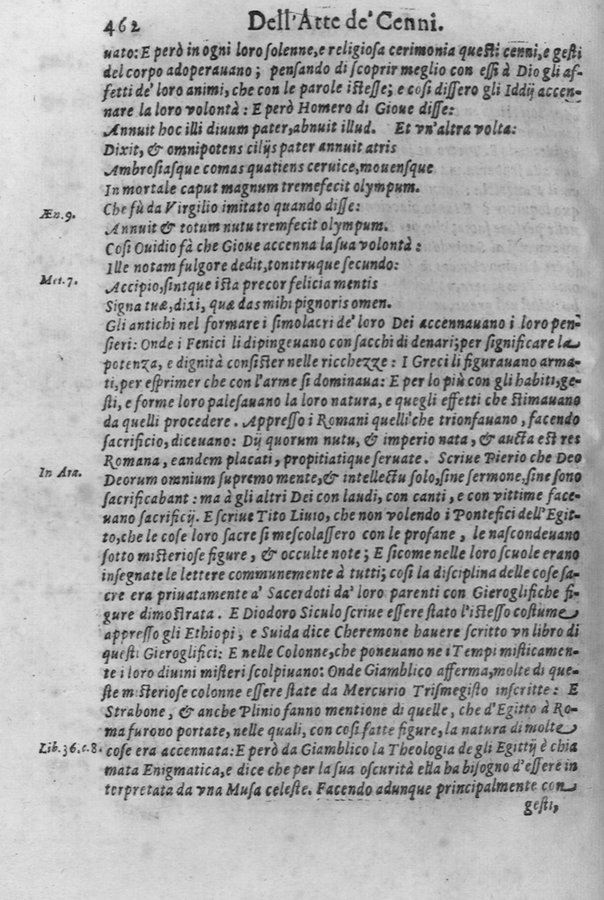 462 Dell'Arte de' Cenni.
uato: E però in ogni loro solenne, e religiosa cerimonia questi cenni, e gesti
del corpo adoperauano; pensando di scoprir meglio con essi à Dio gli af-
fetti de' loro animi, che con le parole istesse; e cosi differo gli Iddij accen-
nare la loro volontà: E però Homero di Gioue disse:
Annuit hoc illi diuum pater, abnuit illud. Et vn'altra volta:
Dixit, & omnipotens cilijs pater annuit atris
Ambrosiasque comas quatiens ceruice, mouensque
In mortale caput magnum tremefecit olympum.
Æn. 9. Che fù da Virgilio imitato quando disse:
Annuit & totum nutu tremfecit olympum.
Cosi Ouidio fà che Gioue accenna la sua volontà:
Ille notam fulgore dedit, tonitruque secundo:
Met. 7. Accipio, sintque ista precor felicia mentis
Signa tuæ, dixi, quæ das mihi pignoris omen.
Gli antichi nel formare i simolacri de' loro Dei accennauano i loro pen-
sieri: Onde i Fenici li dipingeuano con sacchi di denari; per significare la
potenza, e dignità consister nelle ricchezze: I Greci li figurauano arma-
ti, per esprimer che con l'arme si dominaua: E per lo più con gli habiti, ge-
sti, e forme loro palesauano la loro natura, e quegli effetti che stimauano
da quelli procedere. Appresso i Romani quelli che trionfauano, facendo
sacrificio, diceuano: Dij quorum nutu, & imperio nata, & aucta est res
Romana, eandem placati, propitiatique seruate. Scriue Pierio che Deo
In Ara. Deorum omnium supremo mente, & intellectu solo, sine sermone, sine sono
sacrificabant: ma à gli altri Dei con laudi, con canti, e con vittime face-
uano sacrificij. E scriue Tito Liuio, che non volendo i Pontefici dell'Egit-
to, che le cose loro sacre si mescolassero con le profane, le nascondeuano
sotto misteriose figure, & occulte note; E sicome nelle loro scuole erano
insegnate le lettere communemente à tutti; cosi la disciplina delle cose sa-
cre era priuatamente a' Sacerdoti da' loro parenti con Gieroglifiche fi-
gure dimostrata. E Diodoro Siculo scriue essere stato l'istesso costume
appresso gli Ethiopi, e Suida dice Cheremone hauere scritto vn libro di
questi Gieroglifici: E nelle Colonne, che poneuano ne i Tempi misticamen-
te i loro diuini misteri scolpiuano: Onde Giamblico afferma, molte di que-
ste misteriose colonne essere state da Mercurio Trismegisto inscritte: E
Strabone, & anche Plinio fanno mentione di quelle, che d'Egitto à Ro-
ma furono portate, nelle quali, con cosi fatte figure, la natura di molte
Lib. 36. c. 8. cose era accennata: E però da Giamblico la Theologia de gli Egittij è chia
mata Enigmatica, e dice che per la sua oscurità ella ha bisogno d'essere in
terpretata da vna Musa celeste. Facendo adunque principalmente con
gesti,